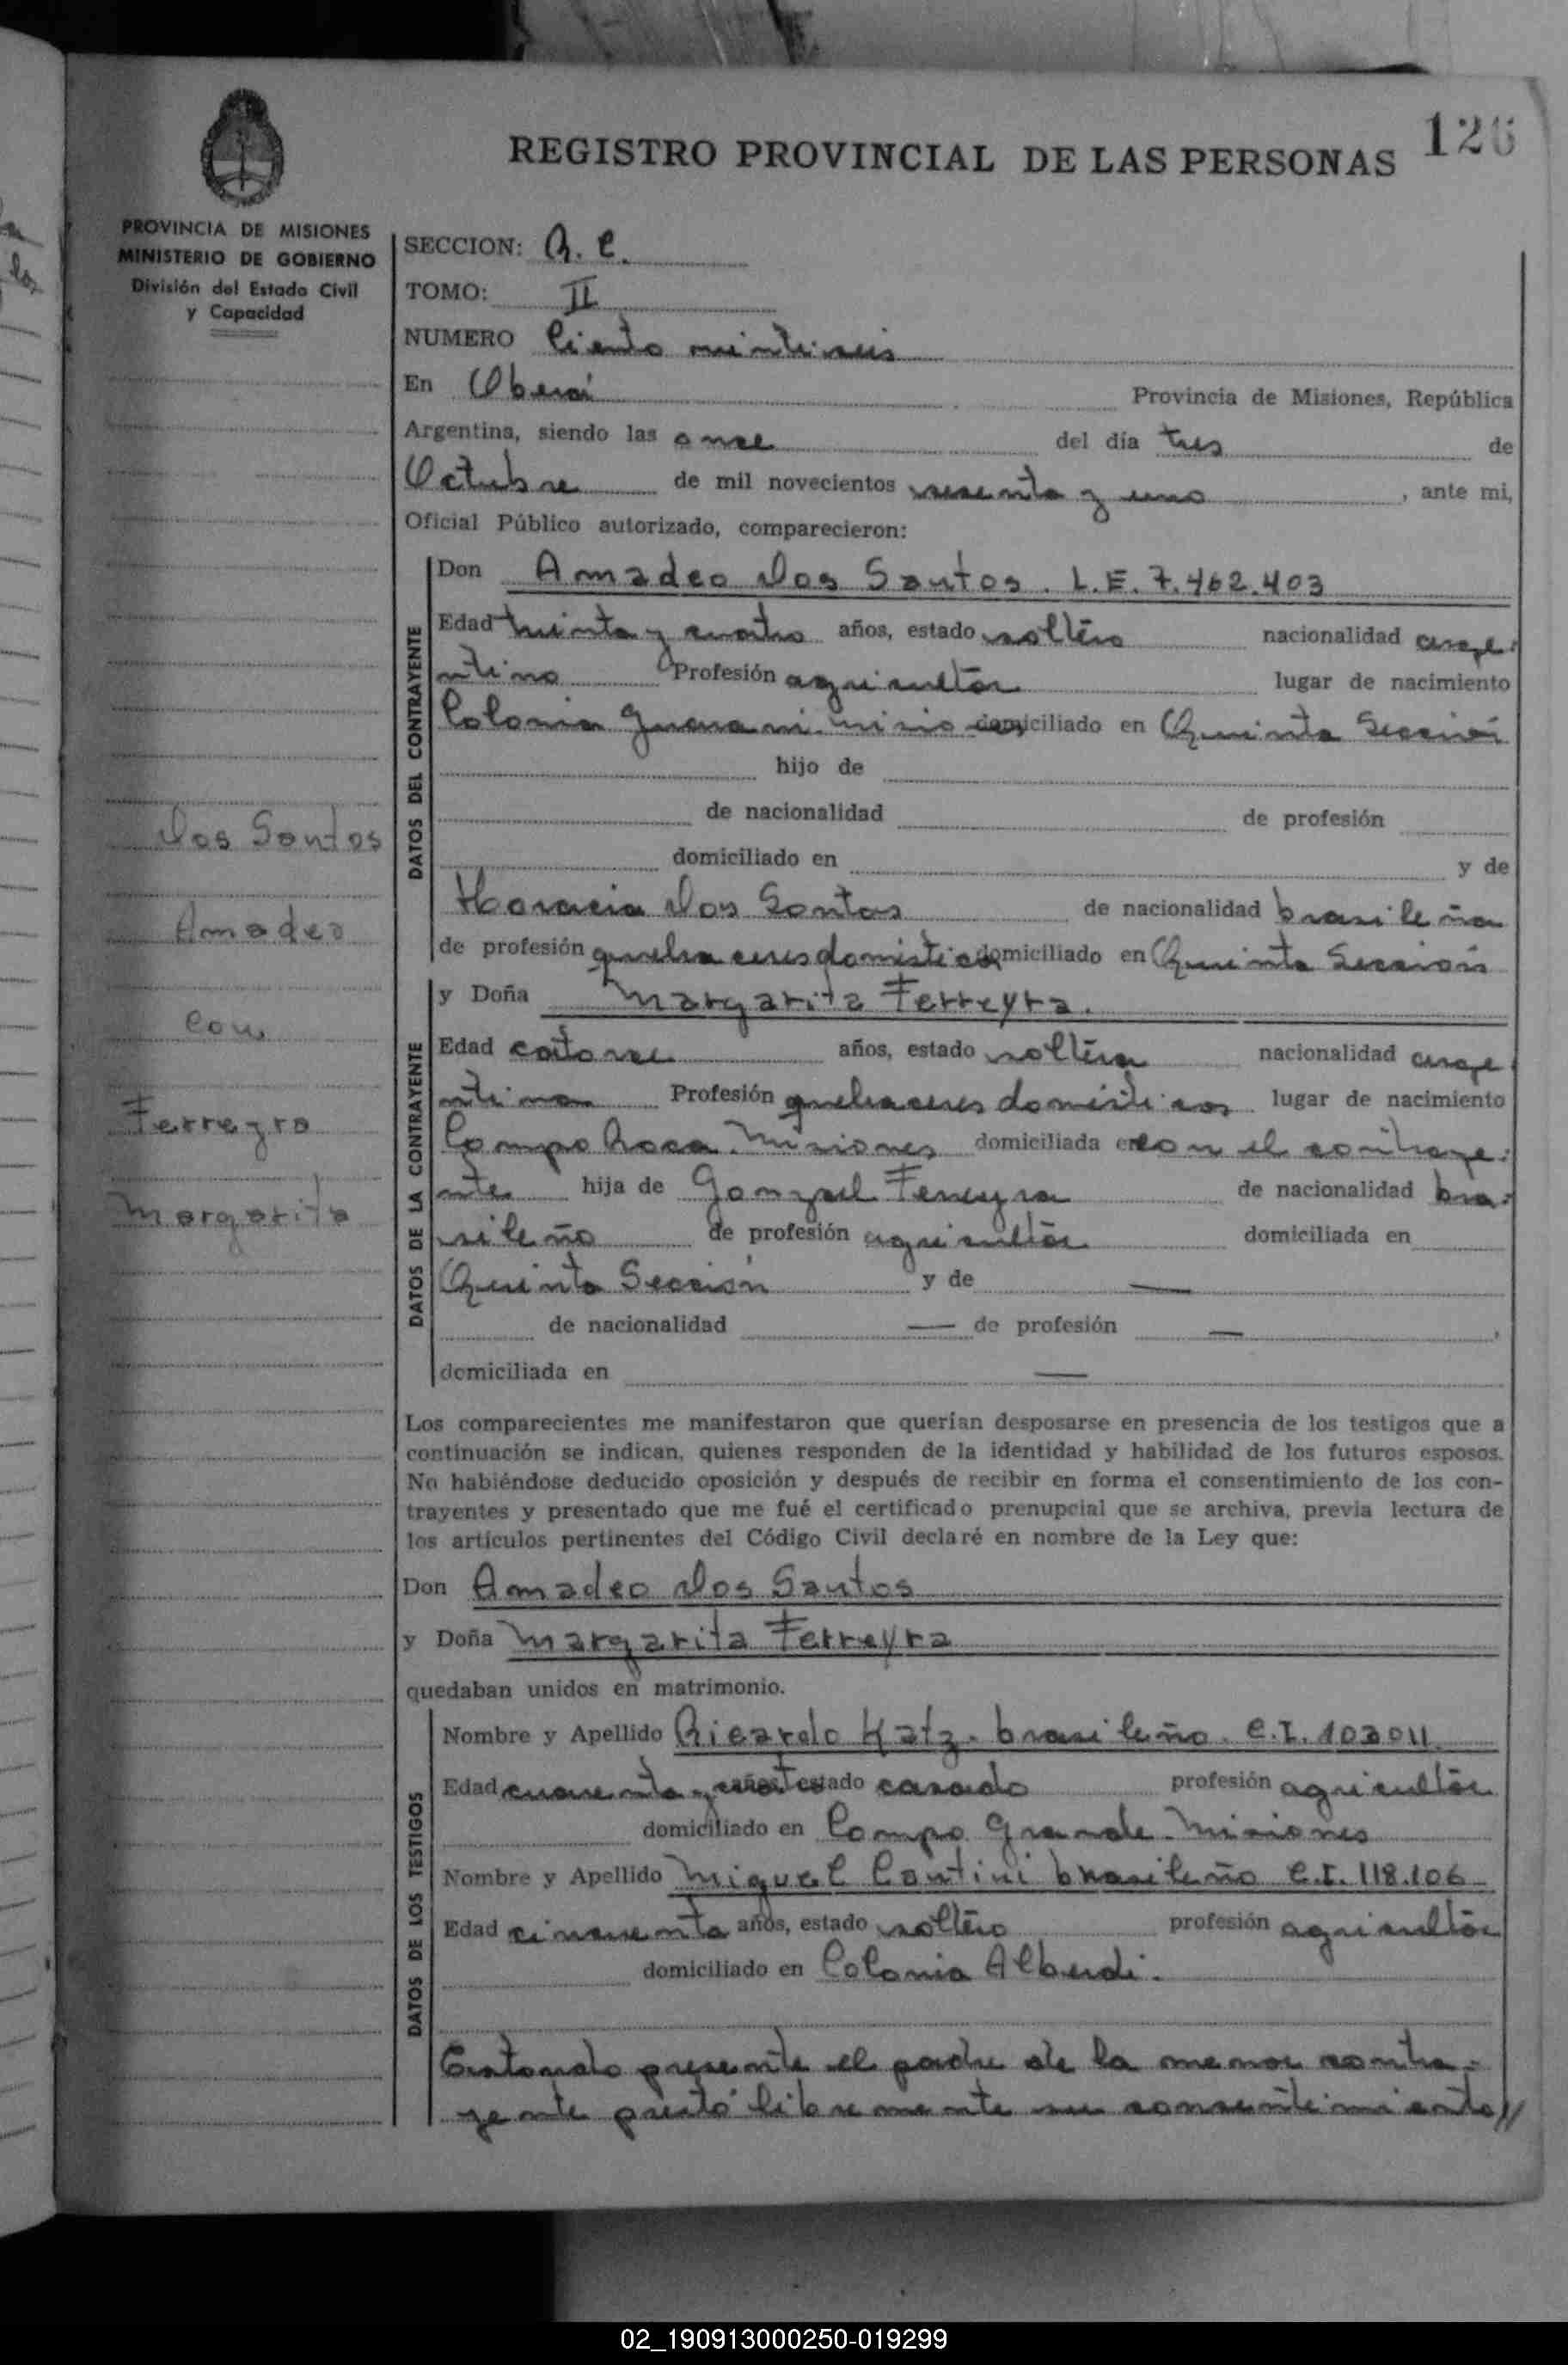 126
REGISTRO PROVINCIAL DE LAS PERSONAS
PROVINCIA DE MISIONES
MINISTERIO DE GOBIERNO
División del Estado Civil
y Capacidad
SECCION: R. C.
TOMO: II
NUMERO Ciento veintiseis
En Oberá Provincia de Misiones, República
Argentina, siendo las once del día tres de
Octubre de mil novecientos sesenta y uno, ante mi,
Oficial Público autorizado, comparecieron:
DATOS DEL CONTRAYENTE
Don Amadeo Dos Santos. L.E. 7.462.403
Edad treinta y cuatro años, estado soltero nacionalidad arge-
ntino Profesión agricultor lugar de nacimiento
Colonia Guarani. Misiones domiciliado en Quinta Sección
hijo de
de nacionalidad de profesión
domiciliado en y de
Horacia Dos Santos de nacionalidad brasileña
de profesión quehaceres domésticos domiciliado en Quinta Sección
DATOS DE LA CONTRAYENTE
y Doña Margarita Ferreyra.
Edad catorce años, estado soltera nacionalidad arge-
ntina Profesión quehaceres domésticos lugar de nacimiento
Campo Roca. Misiones domiciliada en con el contraye-
nte hija de Ferreyra de nacionalidad bra-
sileño de profesión agricultor domiciliada en
Quinta Sección y de —
de nacionalidad — de profesión —,
domiciliada en —
Los comparecientes me manifestaron que querían desposarse en presencia de los testigos que a
continuación se indican, quienes responden de la identidad y habilidad de los futuros esposos.
No habiéndose deducido oposición y después de recibir en forma el consentimiento de los con-
trayentes y presentado que me fué el certificado prenupcial que se archiva, previa lectura de
los artículos pertinentes del Código Civil declaré en nombre de la Ley que:
Don Amadeo Dos Santos
y Doña Margarita Ferreyra
quedaban unidos en matrimonio.
DATOS DE LOS TESTIGOS
Nombre y Apellido Ricardo Katz. brasileño. C.I. 103011
Edad cuarenta y años, estado casado profesión agricultor
domiciliado en Campo Grande. Misiones
Nombre y Apellido Miguel Contini brasileño C.I. 118.106
Edad cincuenta años, estado soltero profesión agricultor
domiciliado en Colonia Alberdi.
Estando presente el padre de la menor contra-
yente prestó libremente su consentimiento//
Dos Santos
Amadeo
con
Ferreyra
Margarita
02_190913000250-019299